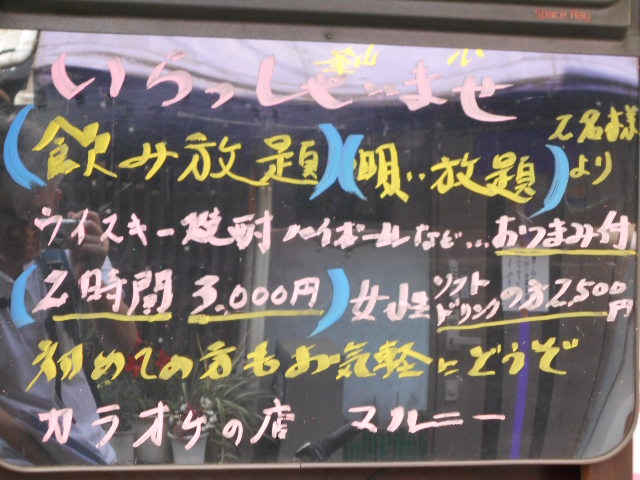 Space Play
いらっしゃいませ
(飲み放題)(唄い放題) 2名様より
ウイスキー焼酎ハイボールなど…おつまみ付
(2時間 3.000円) 女性ソフトドリンクの方2,500円
初めての方もお気軽にどうぞ
カラオケの店 マルニー